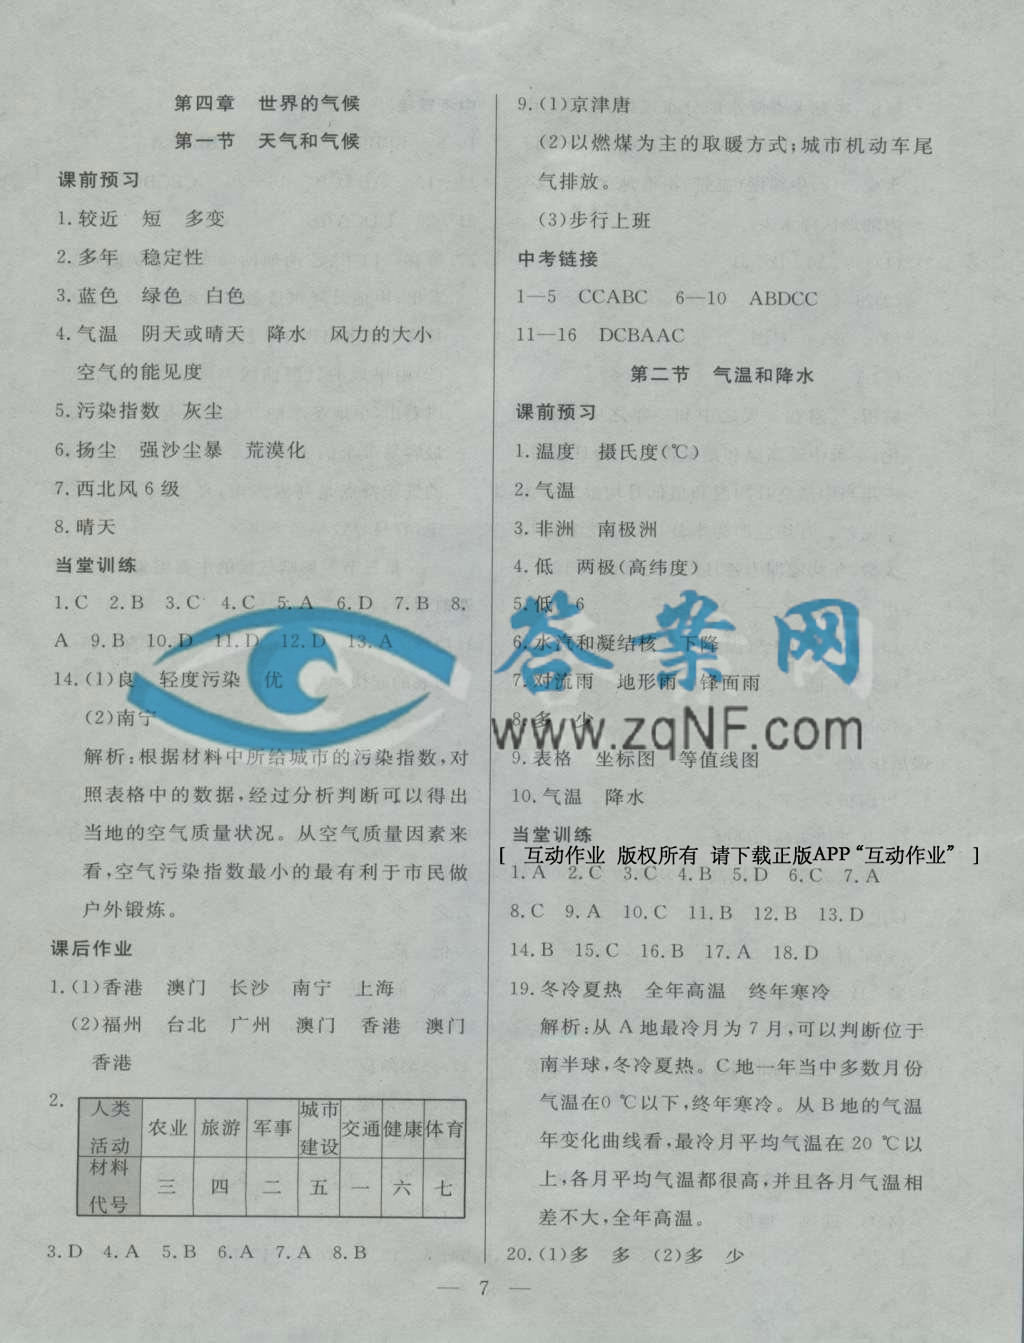 第四章 世界的气候
第一节 天气和气候
课前预习
1.较近 短 多变
2.多年 稳定性
3.蓝色 绿色 白色
4.气温 阴天或晴天 降水 风力的大小
空气的能见度
5.污染指数 灰尘
6.扬尘 强沙尘暴 荒漠化
7.西北风6级
8.晴天
当堂训练
1.C 2.B 3.C 4.C 5.A 6.D 7.B 8.
A 9.B 10.D 11.D 12.D 13.A
14.(1)良 轻度污染 优
(2)南宁
解析:根据材料中所给城市的污染指数,对
照表格中的数据,经过分析判断可以得出
当地的空气质量状况。从空气质量因素来
看,空气污染指数最小的最有利于市民做
户外锻炼。
课后作业
1.(1)香港 澳门 长沙 南宁 上海
(2)福州 台北 广州 澳门 香港 澳门
香港
2.
人类活动 农业 旅游 军事 城市建设 交通 健康 体育
材料代号 三 四 二 五 一 六 七
3.D 4.A 5.B 6.A 7.A 8.B
9.(1)京津唐
(2)以燃煤为主的取暖方式;城市机动车尾
气排放。
(3)步行上班
中考链接
1—5 CCABC 6—10 ABDCC
11—16 DCBAAC
第二节 气温和降水
课前预习
1.温度 摄氏度(℃)
2.气温
3.非洲 南极洲
4.低 两极(高纬度)
5.低 6
6.水汽和凝结核 下降
7.对流雨 地形雨 锋面雨
8.多 少
9.表格 坐标图 等值线图
10.气温 降水
当堂训练
[ 互动作业 版权所有 请下载正版APP“互动作业” ]
1.A 2.C 3.C 4.B 5.D 6.C 7.A
8.C 9.A 10.C 11.B 12.B 13.D
14.B 15.C 16.B 17.A 18.D
19.冬冷夏热 全年高温 终年寒冷
解析:从A地最冷月为7月,可以判断位于
南半球,冬冷夏热。C地一年当中多数月份
气温在0 ℃以下,终年寒冷。从B地的气温
年变化曲线看,最冷月平均气温在20 ℃以
上,各月平均气温都很高,并且各月气温相
差不大,全年高温。
20.(1)多 多 (2)多 少
— 7 —
答案网
www.zqNF.com